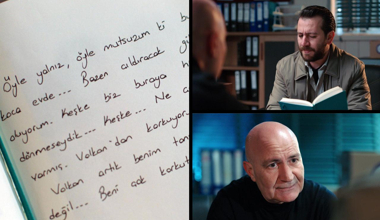 Öyle yalnız, öyle mutsuzum ki bu
koca evde... Bazen aıldıracak gi
oluyorum. Keşke biz buraya h
dönmeseydik.... Keşke.... Ne a
varmış. Volkan'dan korkuyor
Volkan artık benim tan
değil.... Beni çok korkut